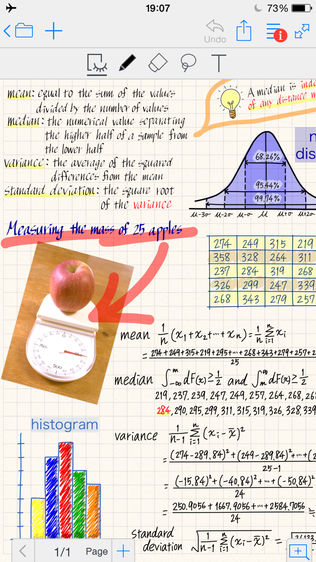 19:07
73%
Undo
T
mean: equal to the sum of the values
divided by the number of values
median: the numerical value separating
the higher half of a sample from
the lower half
variance: the average of the squared
differences from the mean
standard deviation: the square root
of the variance
A median is
of any distance
68.26%
95.44%
99.74%
μ-3σ μ-2σ μ-σ μ μ+σ μ+2σ
Measuring the mass of 25 apples
274 249 315 219
358 328 264 311
237 284 319 268
326 299 247 339
268 343 279 257
mean 1/n (x₁+x₂+⋯+xₙ)=1/n Σⁿᵢ₌₁ xᵢ
=(274+249+315+219+295+⋯+268+343+279+257+2
25
median ∫ᵐ₋∞ dF(x)≥1/2 and ∫∞ₘ dF(x)≥1/2
219, 237, 239, 247, 249, 257, 264, 268, 26
284, 290, 295, 299, 311, 315, 319, 326, 328, 339
histogram
variance 1/n-1 Σⁿᵢ₌₁ (xᵢ-x̄)²
=(274-289.84)²+(249-289.84)²+⋯+(
25-1
=(-15.84)²+(-40.84)²+⋯+(-50.84)²
24
=250.9056+1667.9056+⋯+2584.7056
24
standard
deviation √1/n-1 Σⁿᵢ₌₁ (xᵢ-x̄)²
1/1 Page